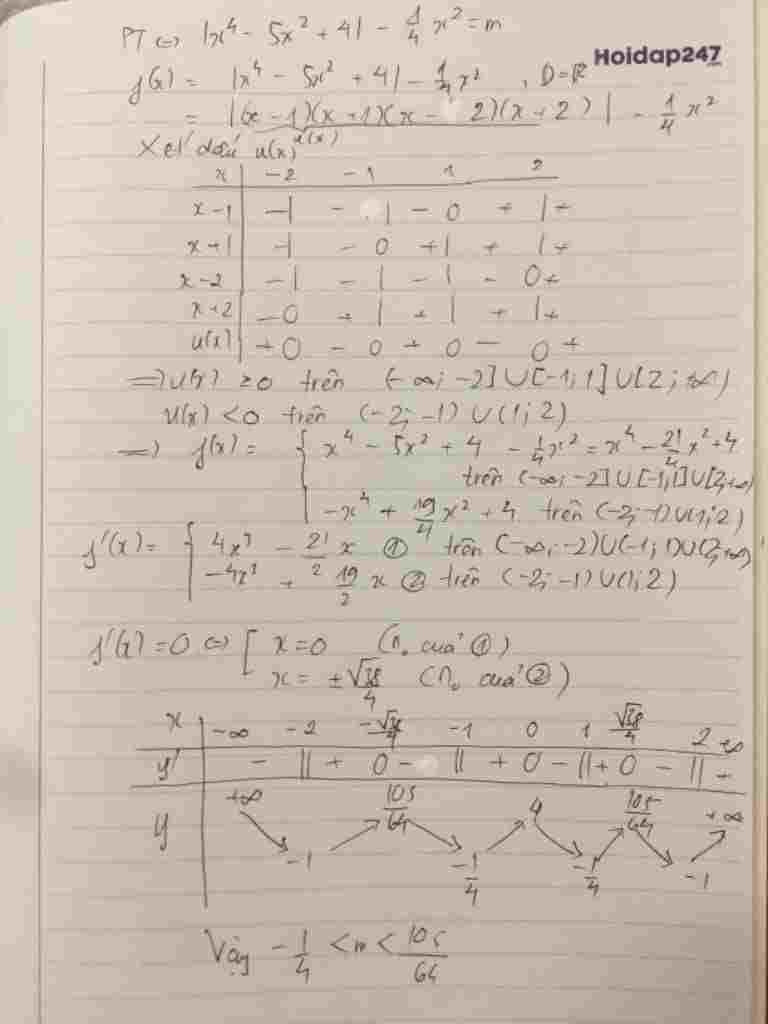 PT ⇔ |x⁴ - 5x² + 4| - 1/4 x² = m
Hoidap247
f(x) = |x⁴ - 5x² + 4| - 1/4 x² , D = ℝ
= |(x - 1)(x + 1)(x - 2)(x + 2)| - 1/4 x²
u(x)
Xét dấu u(x)
x | -2 -1 1 2
x - 1 | - | - | - 0 + | +
x + 1 | - | - 0 + | + | +
x - 2 | - | - | - | - 0 +
x + 2 | - 0 + | + | + | +
u(x) | + 0 - 0 + 0 - 0 +
⇒ u(x) ≥ 0 trên (-∞; -2] ∪ [-1; 1] ∪ [2; +∞)
u(x) < 0 trên (-2; -1) ∪ (1; 2)
⇒ f(x) = { x⁴ - 5x² + 4 - 1/4 x² = x⁴ - 21/4 x² + 4
trên (-∞; -2] ∪ [-1; 1] ∪ [2; +∞)
-x⁴ + 19/4 x² + 4 trên (-2; -1) ∪ (1; 2)
f'(x) = { 4x³ - 21/2 x ① trên (-∞; -2) ∪ (-1; 1) ∪ (2; +∞)
-4x³ + 19/2 x ② trên (-2; -1) ∪ (1; 2)
f'(x) = 0 ⇔ [ x = 0 (n₀ của ①)
x = ± √38/4 (n₀ của ②)
x | -∞ -2 -√38/4 -1 0 1 √38/4 2 +∞
y' | - || + 0 - || + 0 - || + 0 - || +
y | +∞ -1 105/64 -1/4 4 -1/4 105/64 -1 +∞
Vậy -1/4 < m < 105/64